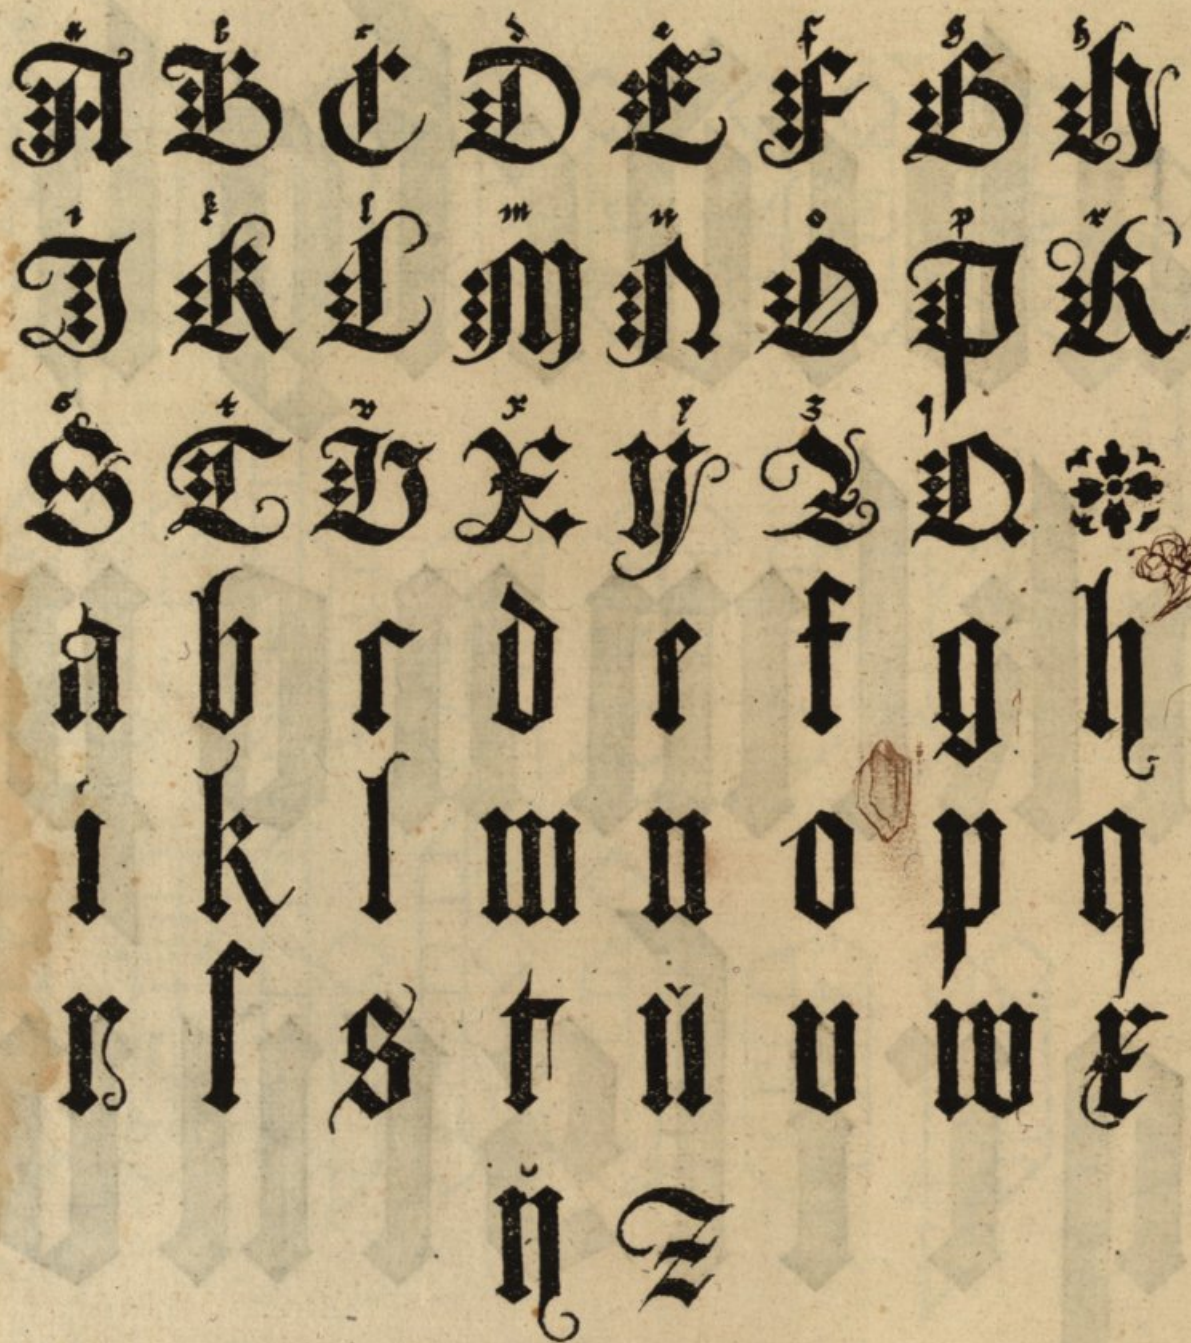 a b c d e f g h
A B C D E F G H
i k l m n o p r
I K L M N O P R
s t v x y z q
S T V X Y Z Q
a b c d e f g h
i k l m n o p q
r ſ s t ŭ v w x
y̆ z